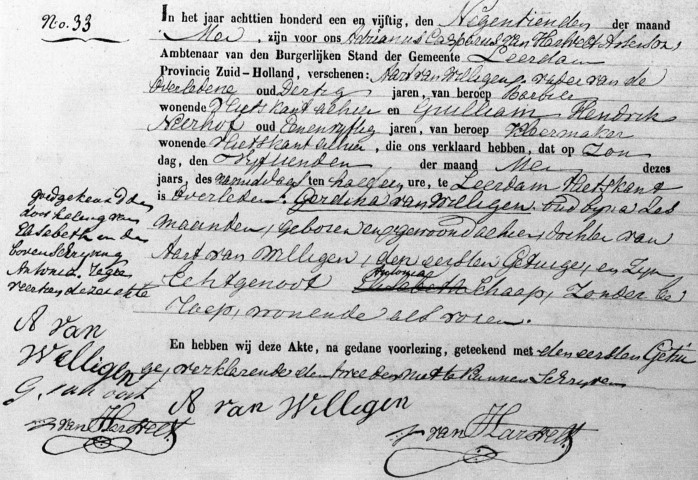 No. 33
In het jaar achttien honderd een en vijftig, den Negentienden der maand
Mei, zijn voor ons Adrianus
Ambtenaar van den Burgerlijken Stand der Gemeente Leerdam
Provincie Zuid-Holland, verschenen: Aart van Willigen, vader van de
Overledene oud Dertig jaren, van beroep Barbier
wonende Vlietskant alhier en Guilliam Hendrik
Neerhof oud Eenenvyftig jaren, van beroep
wonende Vlietskant alhier, die ons verklaard hebben, dat op Zon
dag, den der maand Mei dezes
jaars, des namiddags ten half een ure, te Leerdam Vlietskant
is Overleden. Gerdina van Willigen. oud byna zes
maanden, geboren en gewoond alhier, dochter van
Aart van Willigen, den eersten Getuige, en Zyn
Antonia
Echtgenoot Elisabeth Schaap, Zonder be,
roep, wonende als voren.
En hebben wij deze Akte, na gedane voorlezing, geteekend met den eersten Getui
ge, verklarende de tweede niet te kunnen Schryven
goedgekeurd den
doorhaling van
Elisabeth en de
bovenschryving
Antonia.
deze akte
A van
Willigen
A van Willigen